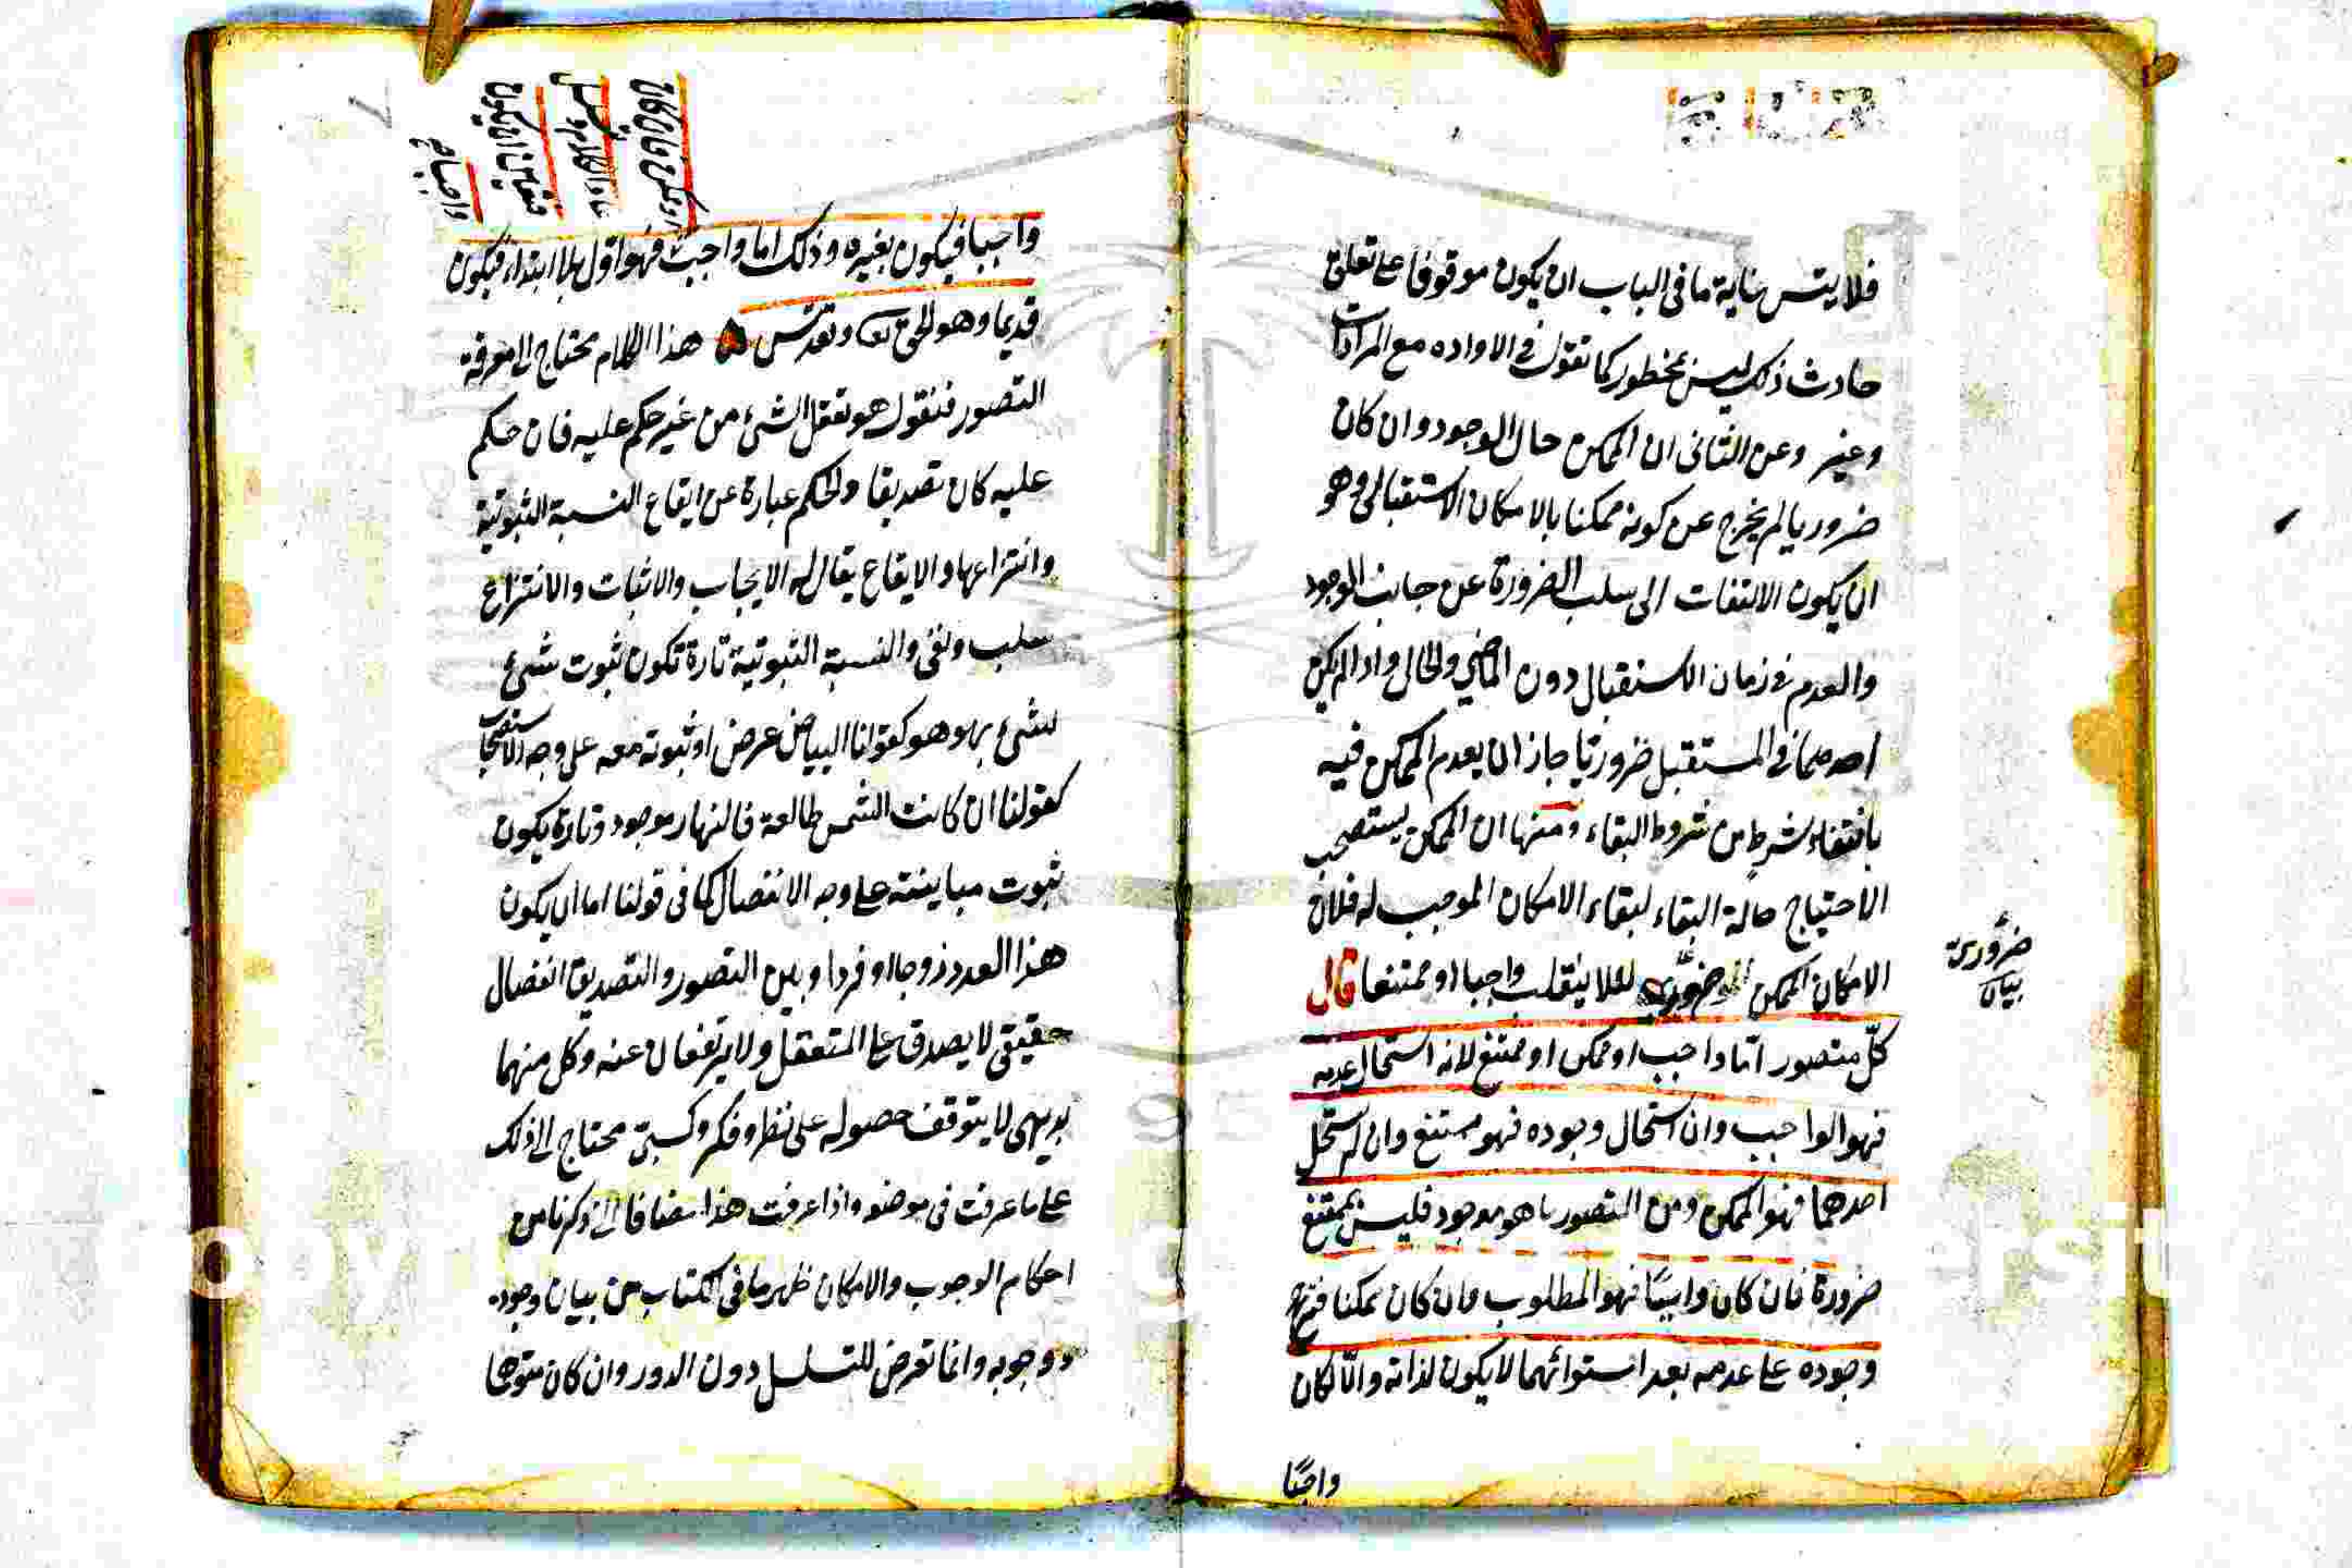 فلا يتس غاية ما فى الباب ان يكون موقوفا على تعلق
حادث ذلك ليس بمحظور كما نقول فى الاراده مع المرادات
وغير وعن الثانى ان الممكن حال الوجود وان كان
ضروريا لم يخرج عن كونه ممكنا بالامكان الاستقبالى وهو
ان يكون الالتفات الى سلب الضرورة عن جانب الوجود
والعدم فى زمان الاستقبال دون الماضى والحال واذا لم يكن
احدهما فى المستقبل ضروريا جاز ان يعدم الممكن فيه
بانتفاء شرط من شروط البقاء ومنها ان الممكن يستصحب
الاحتياج حالة البقاء لبقاء الامكان الموجب له فلان
الامكان الممكن ضرورى لئلا ينقلب واجبا او ممتنعا قال
كل متصور اما واجب او ممكن او ممتنع لانه استحال عدمه
فهو الواجب وان استحال وجوده فهو ممتنع وان لم يستحل
احدهما فهو الممكن ومن المتصور ما هو موجود فليس بممتنع
ضرورة فان كان واجبًا فهو المطلوب وان كان ممكنا فترجح
وجوده على عدمه بعد استوائهما لا يكون لذاته والّا لكان
واجبًا
ضرورية
بيان
واجبا فيكون بغيره وذلك اما واجب فهو اول بلا ابتداء فيكون
قديما وهو الحق تع وتقدس هذا الكلام محتاج الى معرفة
التصور فنقول هو تعقل الشئ من غير حكم عليه فان حكم
عليه كان تصديقا والحكم عبارة عن ايقاع النسبة الثبوتية
وانتزاعها والايقاع يقال له الايجاب والاثبات والانتزاع
سلب ونفى والنسبة الثبوتية تارة تكون ثبوت شئ
لشئ بهو هو كقولنا البياض عرض او ثبوته معه على وجه الاستصحاب
كقولنا ان كانت الشمس طالعة فالنهار موجود وتارة يكون
ثبوت مباينته على وجه الانفصال كما فى قولنا اما ان يكون
هذا العدد زوجا او فردا وبين التصور والتصديق انفصال
حقيقى لا يصدق على المتعقل ولا يرتفعان عنه وكل منهما
بديهى لا يتوقف حصوله على نظر وفكر وكسبى محتاج الى ذلك
على ما عرفت فى موضعه واذا عرفت هذا مضافا الى ذكرنا من
احكام الوجوب والامكان ظهر ما فى الكتاب من بيان وجوده
ووجوبه وانما تعرض للتسلسل دون الدور وان كان متوهما